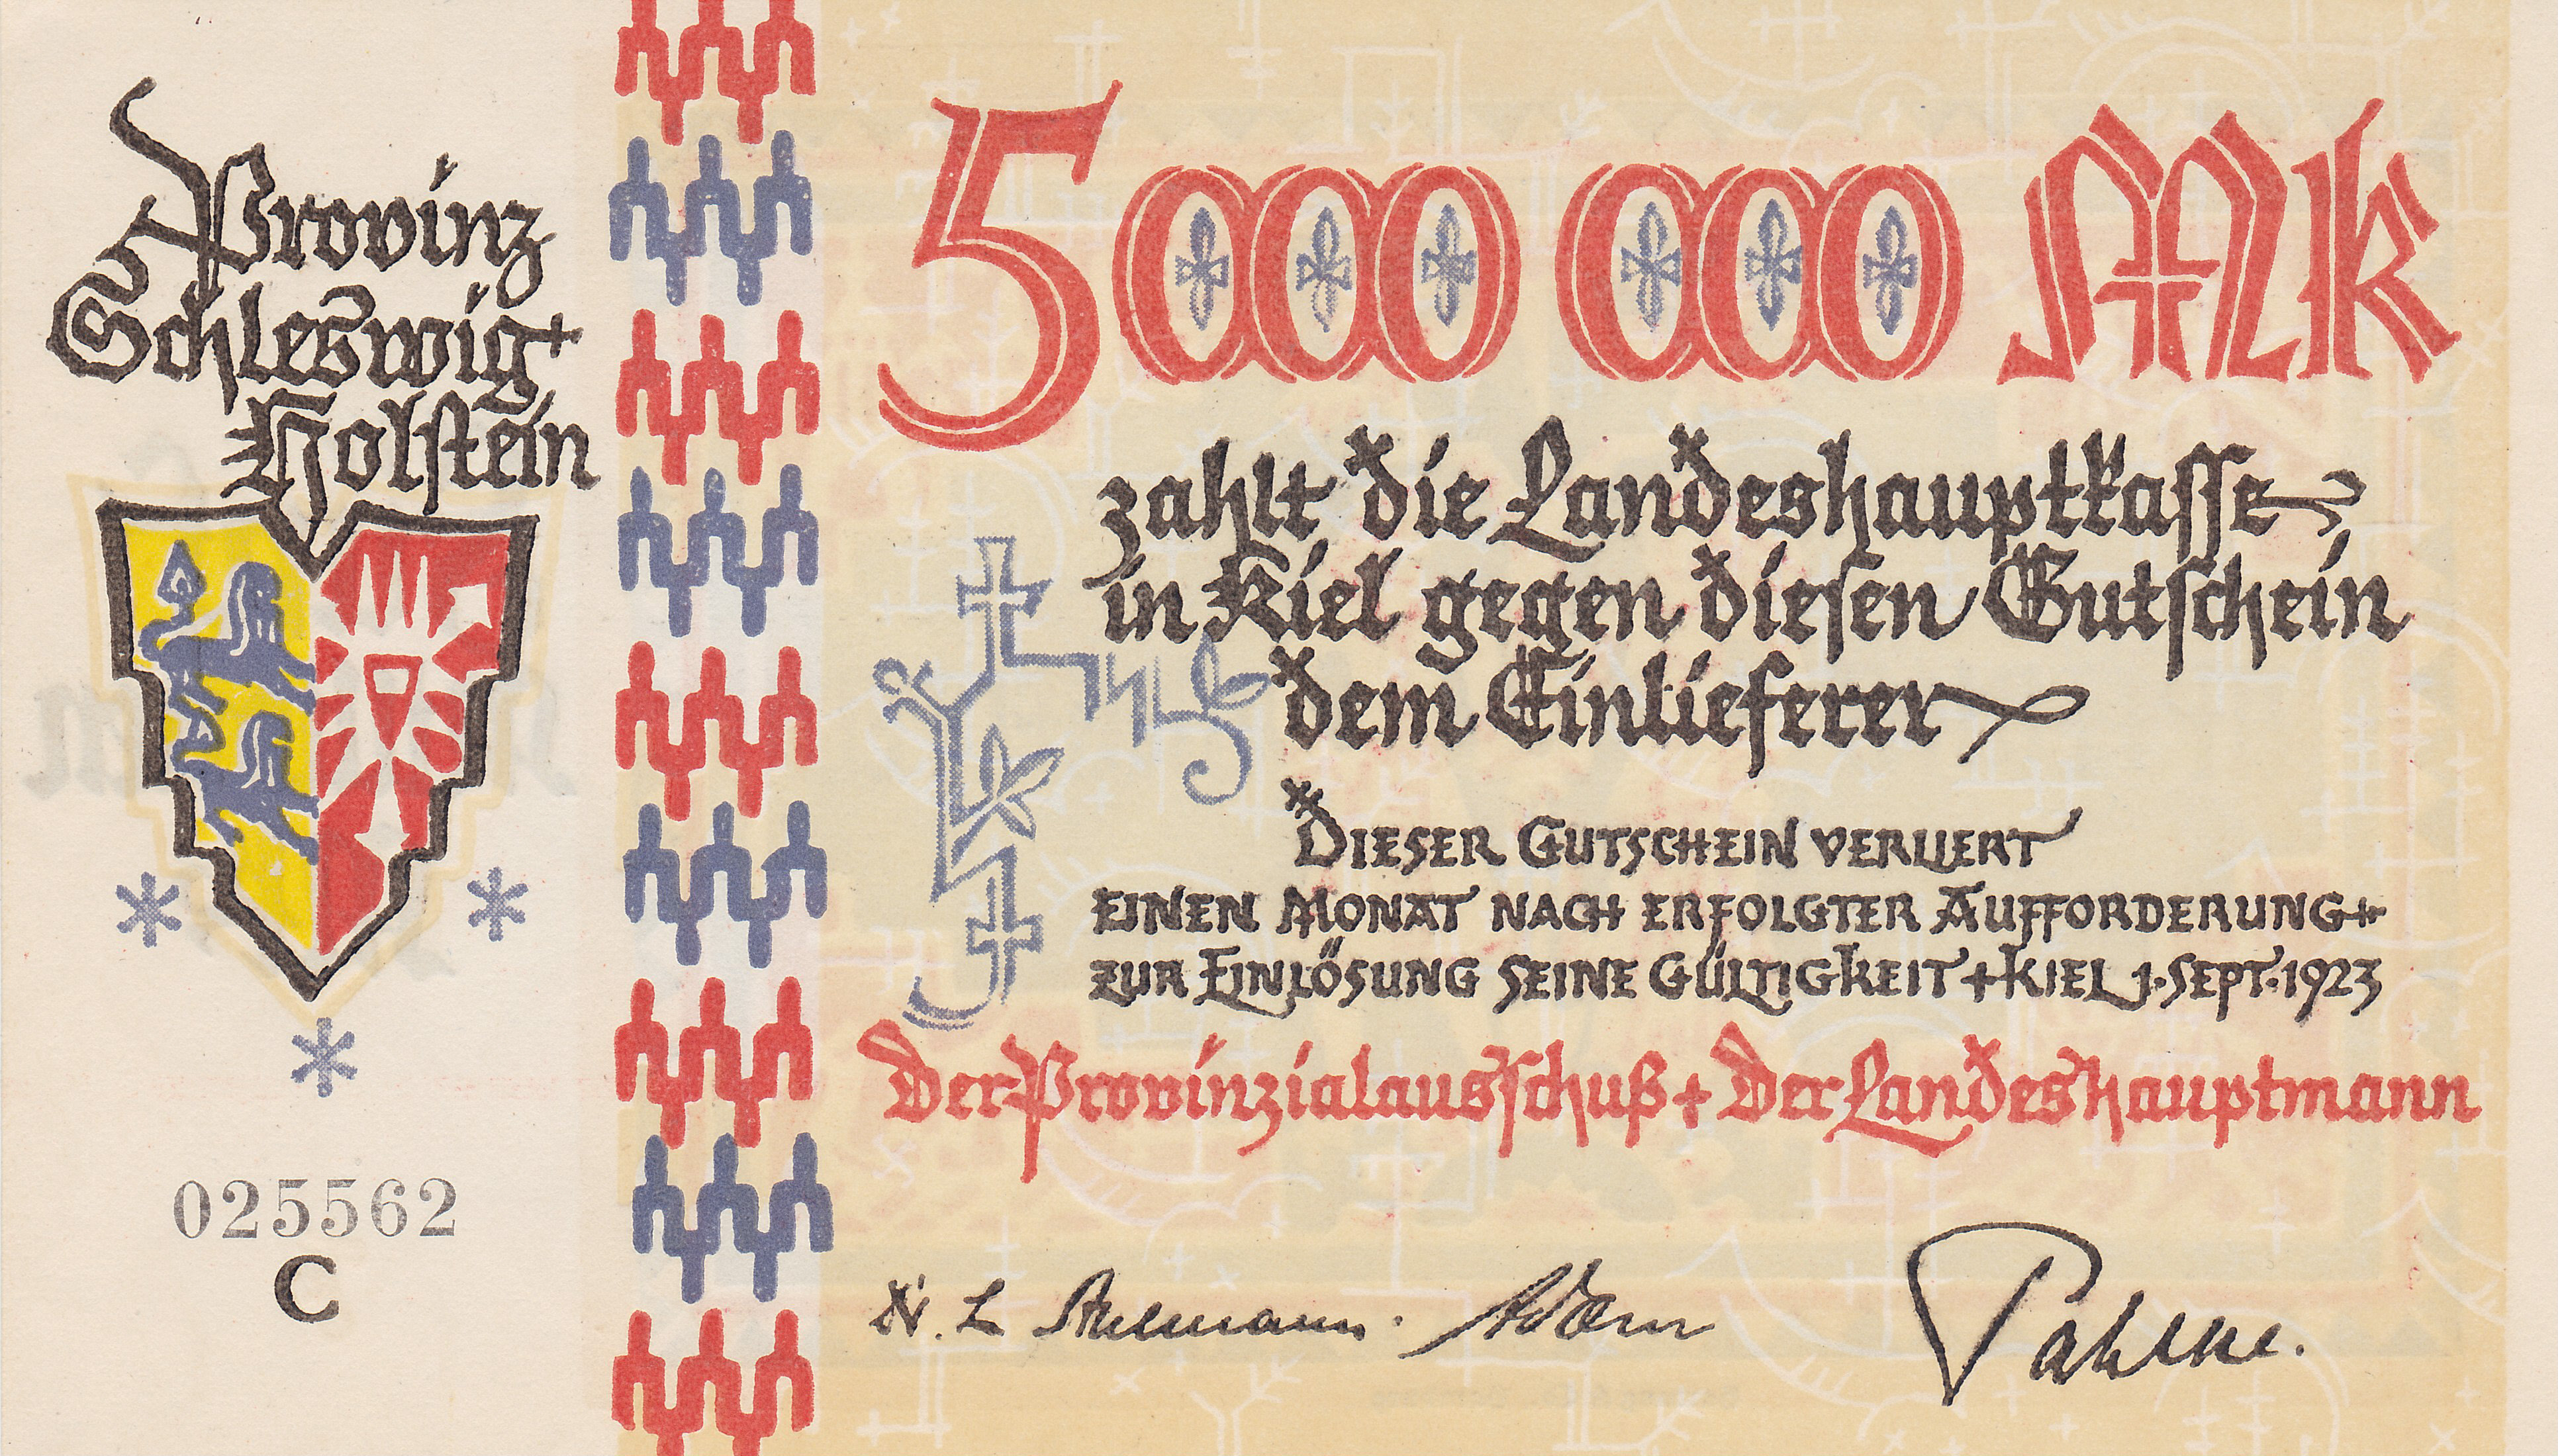 Provinz
Schleswig+
Holstein
025562
C
5000 000 Mk
zahlt die Landeshauptkasse
in Kiel gegen diesen Gutschein
dem Einlieferer
DIESER GUTSCHEIN VERLIERT
EINEN MONAT NACH ERFOLGTER AUFFORDERUNG+
ZUR EINLÖSUNG SEINE GÜLTIGKEIT + KIEL 1. SEPT. 1923
Der Provinzialausschuß + Der Landeshauptmann
Pahlke.